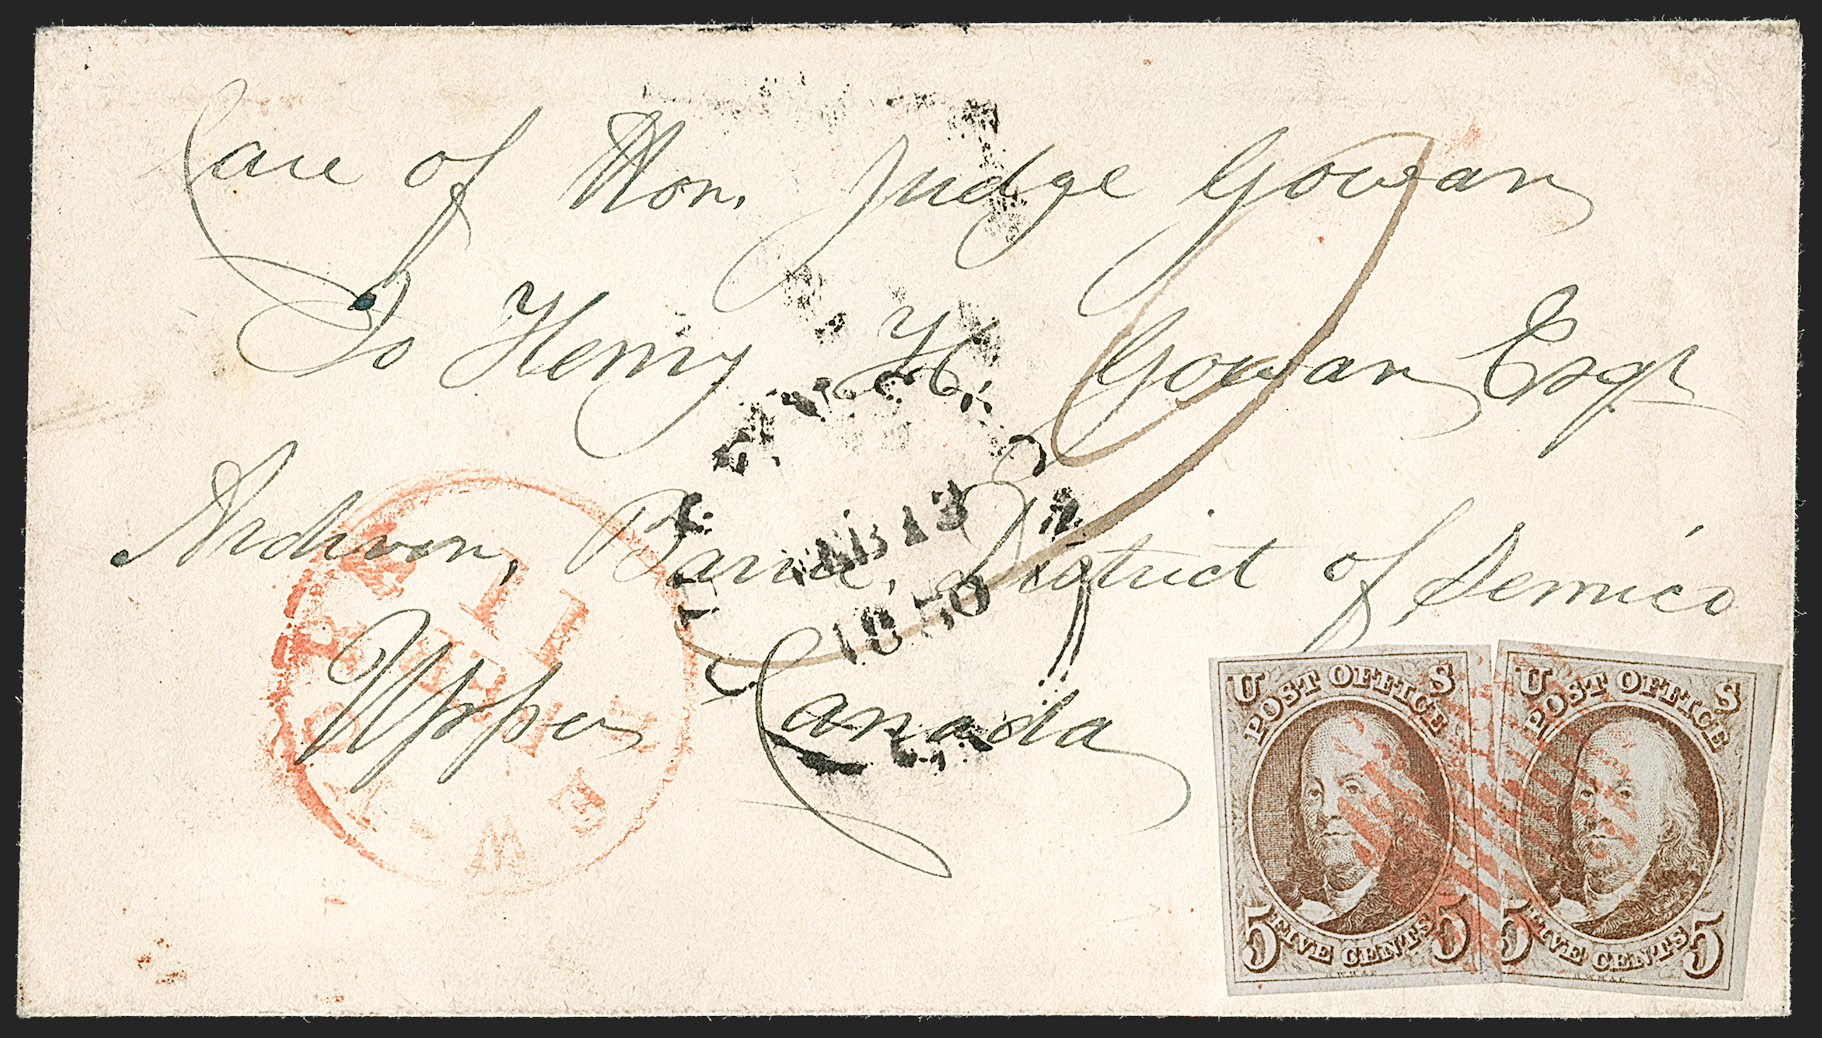 Care of Hon. Judge Gowan
To Henry H. Gowan Esqr
Ardraven, Barrie, District of Semico
Upper Canada
NEW-YORK
11
FEB
13
1850
U S
POST OFFICE
5 FIVE CENTS 5
U S
POST OFFICE
5 FIVE CENTS 5